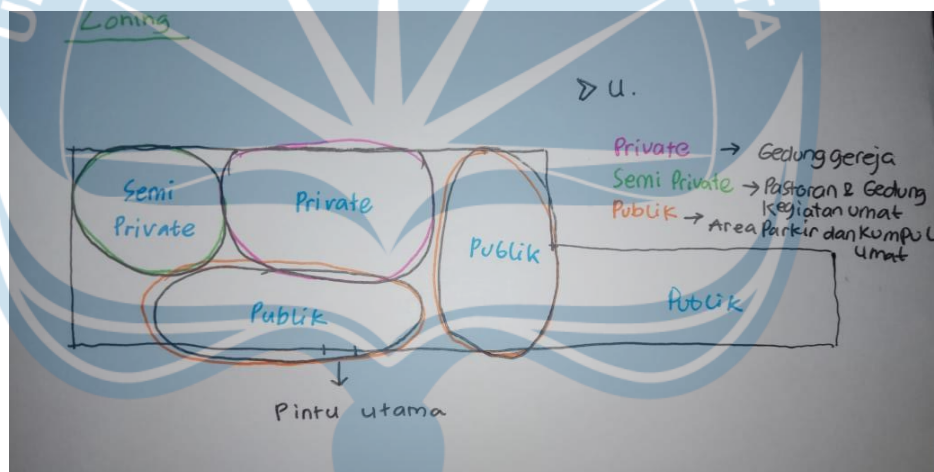 Zoning
▷ U.
Private → Gedung gereja
Semi Private → Pastoran & Gedung
Kegiatan umat
Publik → Area Parkir dan Kumpul
Umat
Semi
Private
Private
Publik
Publik
Publik
Pintu utama